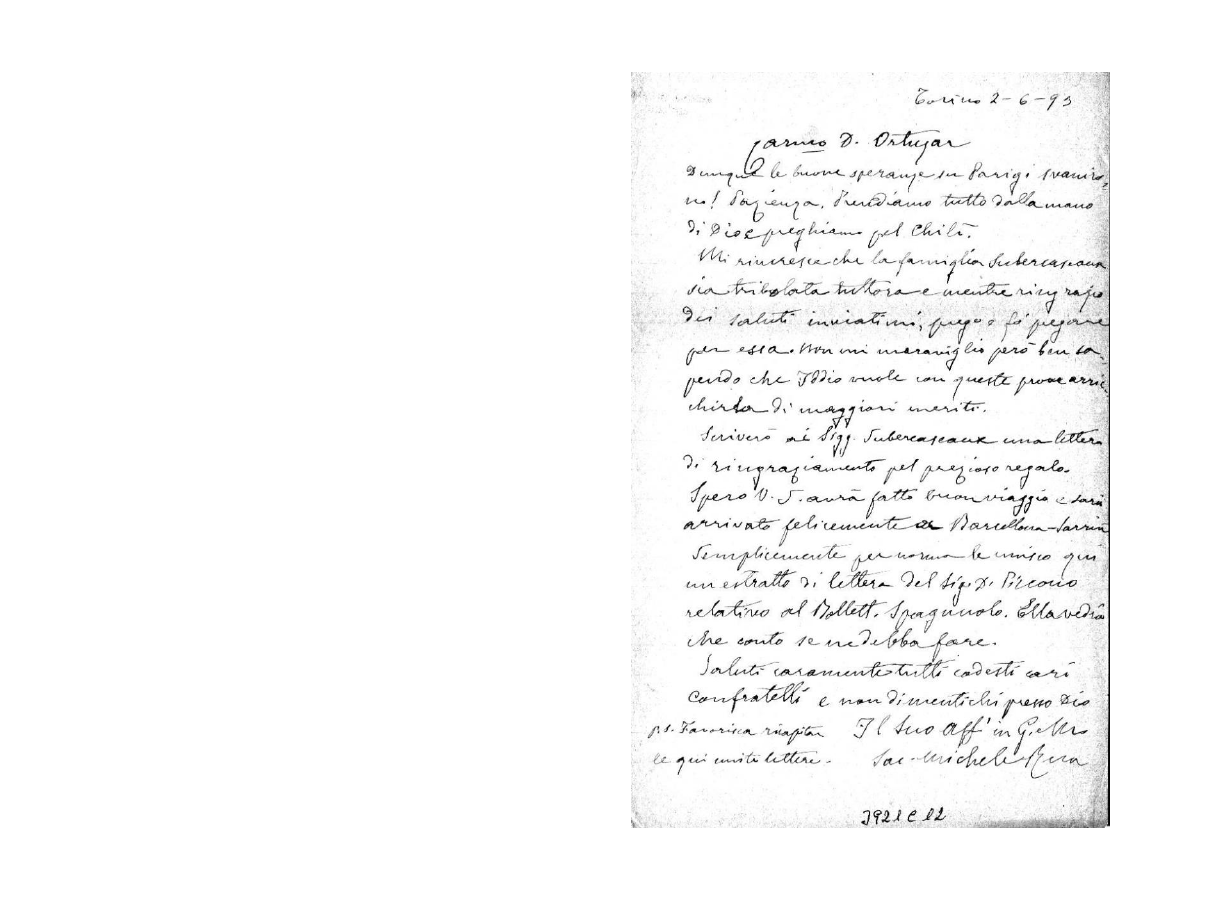 Torino 2-6-93
Carmo D. Ortuzar
Dunque le buone speranze su Parigi svaniro-
no! Pazienza. Prendiamo tutto dalla mano
di Dio e preghiamo pel Chilì.
Mi rincresce che la famiglia Subercaseaux
sia tribolata tuttora e mentre ringrazio
dei saluti inviatimi, prego e fo pregare
per essa. Non mi meraviglio però ben sa-
pendo che Iddio vuole con queste prove arric-
chirla di maggiori meriti.
Scriverò ai Sigg. Subercaseaux una lettera
di ringraziamento pel prezioso regalo.
Spero V. S. avrà fatto buon viaggio e sarà
arrivato felicemente a Barcellona-Sarrià
Semplicemente per norma le unisco qui
un estratto di lettera del Sig. D. Piccono
relativo al Bollett. Spagnuolo. Ella vedrà
che conto se ne debba fare.
Saluti caramente tutti codesti cari
Confratelli e non dimentichi presso Dio
Il Suo Aff in G. e M.
Sac. Michele Rua
P.S. Favorisca ricapitar
le qui unite lettere.